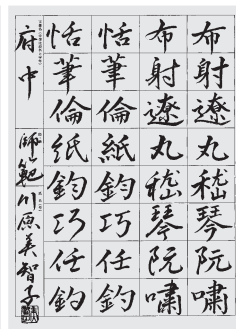 布射遼丸嵇琴阮嘯
布射遼丸嵇琴阮嘯
恬筆倫紙鈞巧任釣
恬筆倫紙鈞巧任釣
府中
師範 川原美智子